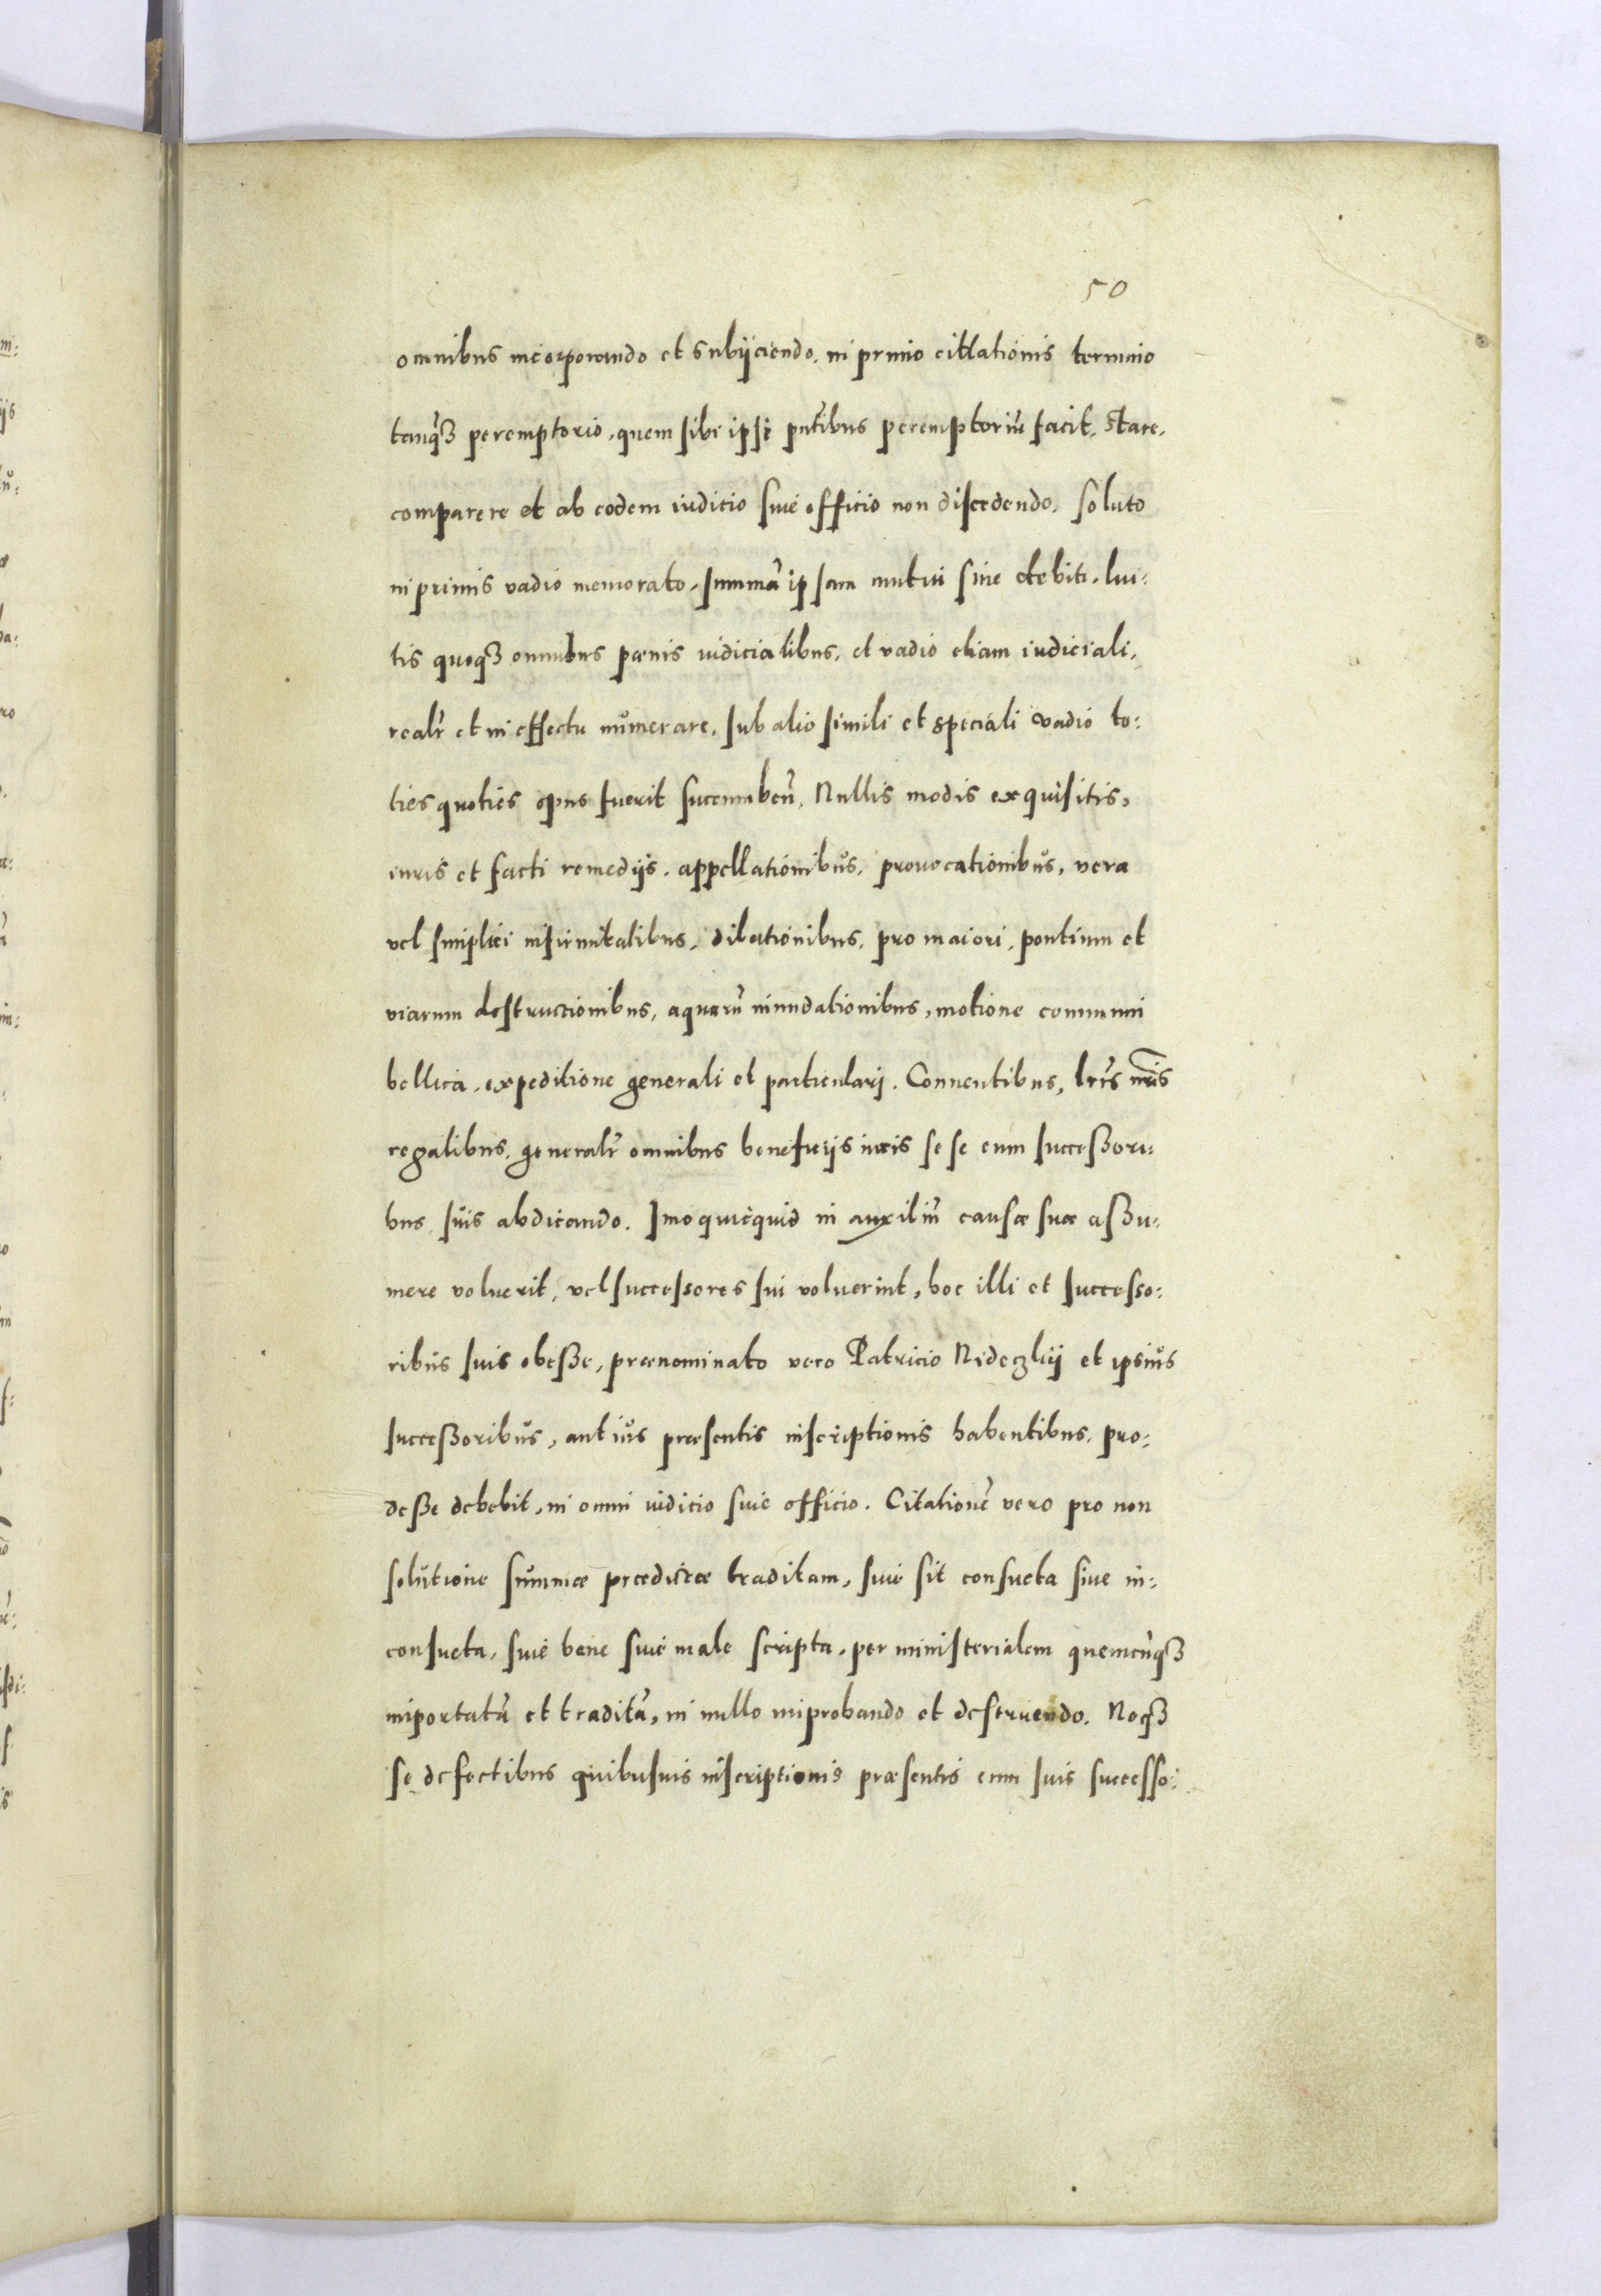 50
omnibus incorporando et subijciendo. in primo cittationis termino
tanq̃ȝ peremptorio, quem sibi ipsi pñtibus peremptoriũ facit, stare,
comparere et ab eodem iuditio siue officio non discedendo. soluto
inprimis vadio memorato, summã ipsam mutui siue debiti, lui:
tis quoqȝ omnibus pænis iudicialibus, et vadio etiam iudiciali,
realr̃ et in effectu numerare, sub alio simili et speciali vadio to:
ties quoties opus fuerit succumbeñ. Nullis modis exquisitis,
iuris et facti remedijs, appellationibus, prouocationibus, vera
vel simplici infirmitatibus, dilationibus, pro maiori, pontium et
viarum destructionibus, aquarũ inundationibus, motione communi
bellica, expeditione generali et particulari. Conuentibus, lr̃is nr̃is
regalibus, generalr̃ omnibus beneficijs iuris se se cum successori:
bus suis abdicando. Imo quicquid in auxiliũ causæ suæ assu:
mere voluerit, vel successores sui voluerint, hoc illi et successo:
ribus suis obesse, prænominato vero Patricio Nideczkij et ipsius
successoribus, aut ius præsentis inscriptionis habentibus, pro:
desse debebit, in omni iudicio siue officio. Citationẽ vero pro non
solutione summæ prædictæ traditam, siue sit consueta siue in:
consueta, siue bene siue male scripta, per ministerialem quemcũqȝ
importatã et traditã, in nullo improbando et destruendo. Neqȝ
se defectibus quibusuis inscriptionis præsentis cum suis successo: